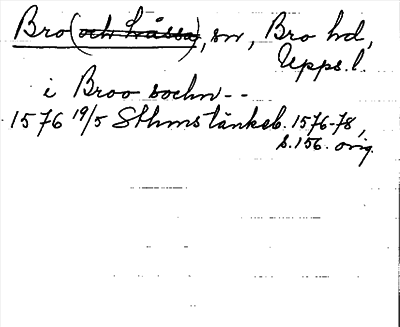 Bro (och Låssa), sn, Bro hd,
Upps. l.
i Broo sochn--
1576 19/5 Sthms tänkeb. 1576-78,
s. 156. orig.